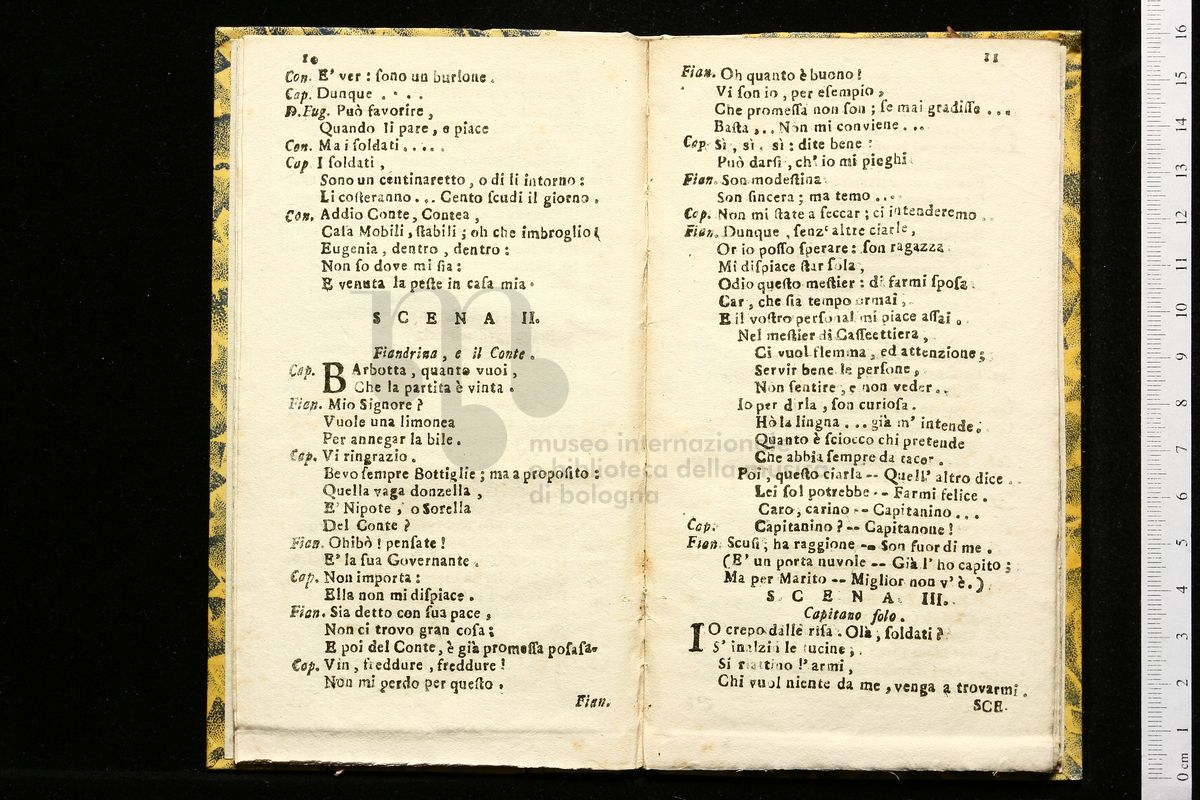 10
Con. E' ver: ſono un burlone.
Cap. Dunque . . . .
D.Eug. Può favorire,
Quando li pare, e piace
Con. Ma i ſoldati.....
Cap I ſoldati,
Sono un centinaretto, o di lì intorno:
Li coſteranno... Cento ſcudi il giorno.
Con. Addio Conte, Contea,
Caſa Mobili, ſtabili; oh che imbroglio!
Eugenia, dentro, dentro:
Non ſo dove mi ſia:
E venuta la peſte in caſa mia.
SCENA II.
Fiandrina, e il Conte.
Cap. BArbotta, quanto vuoi,
Che la partita è vinta.
Fian. Mio Signore?
Vuole una limonea
Per annegar la bile.
Cap. Vi ringrazio.
Bevo ſempre Bottiglie; ma a propoſito:
Quella vaga donzella,
E' Nipote, o Sorella
Del Conte?
Fian. Ohibò! penſate!
E' la ſua Governante.
Cap. Non importa:
Ella non mi diſpiace.
Fian. Sia detto con ſua pace,
Non ci trovo gran coſa;
E poi del Conte, è già promeſſa poſaſa
Cap. Vin, freddure, freddure!
Non mi perdo per queſto.
Fian.
11
Fian. Oh quanto è buono!
Vi ſon io, per eſempio,
Che promeſſa non ſon; ſe mai gradiſſe ...
Baſta,.. Non mi conviene...
Cap. Sì, sì. sì: dite bene:
Può darſi, ch' io mi pieghi
Fian. Son modeſtina
Son ſincera; ma temo....
Cap. Non mi ſtate a ſeccar; ci intenderemo.
Fian. Dunque, ſenz' altre ciarle,
Or io poſſo ſperare: ſon ragazza
Mi diſpiace ſtar ſola,
Odio queſto meſtier: di farmi ſpoſa
Car, che ſia tempo ormai,
E il voſtro perſonal mi piace aſſai.
Nel meſtier di Caffeettiera,
Ci vuol flemma, ed attenzione;
Servir bene le perſone,
Non ſentire, e non veder..
Io per dirla, ſon curioſa.
Hò la lingna... già m' intende.
Quanto è ſciocco chi pretende
Che abbia ſempre da tacer.
Poi, queſto ciarla -- Quell' altro dice..
Lei ſol potrebbe -- Farmi felice.
Caro, carino -- Capitanino...
Cap. Capitanino? -- Capitanone!
Fian. Scuſi; ha raggione -- Son fuor di me.
(E' un porta nuvole -- Già l' ho capito;
Ma per Marito -- Miglior non v' è.)
SCENA III.
Capitano ſolo.
IO crepo dalle riſa. Olà, ſoldati?
S' inalzin le tucine;
Si riattino l' armi,
Chi vuol niente da me, venga a trovarmi.
SCE-
museo internazionale
e biblioteca della musica
di bologna
0 cm 1 2 3 4 5 6 7 8 9 10 11 12 13 14 15 16